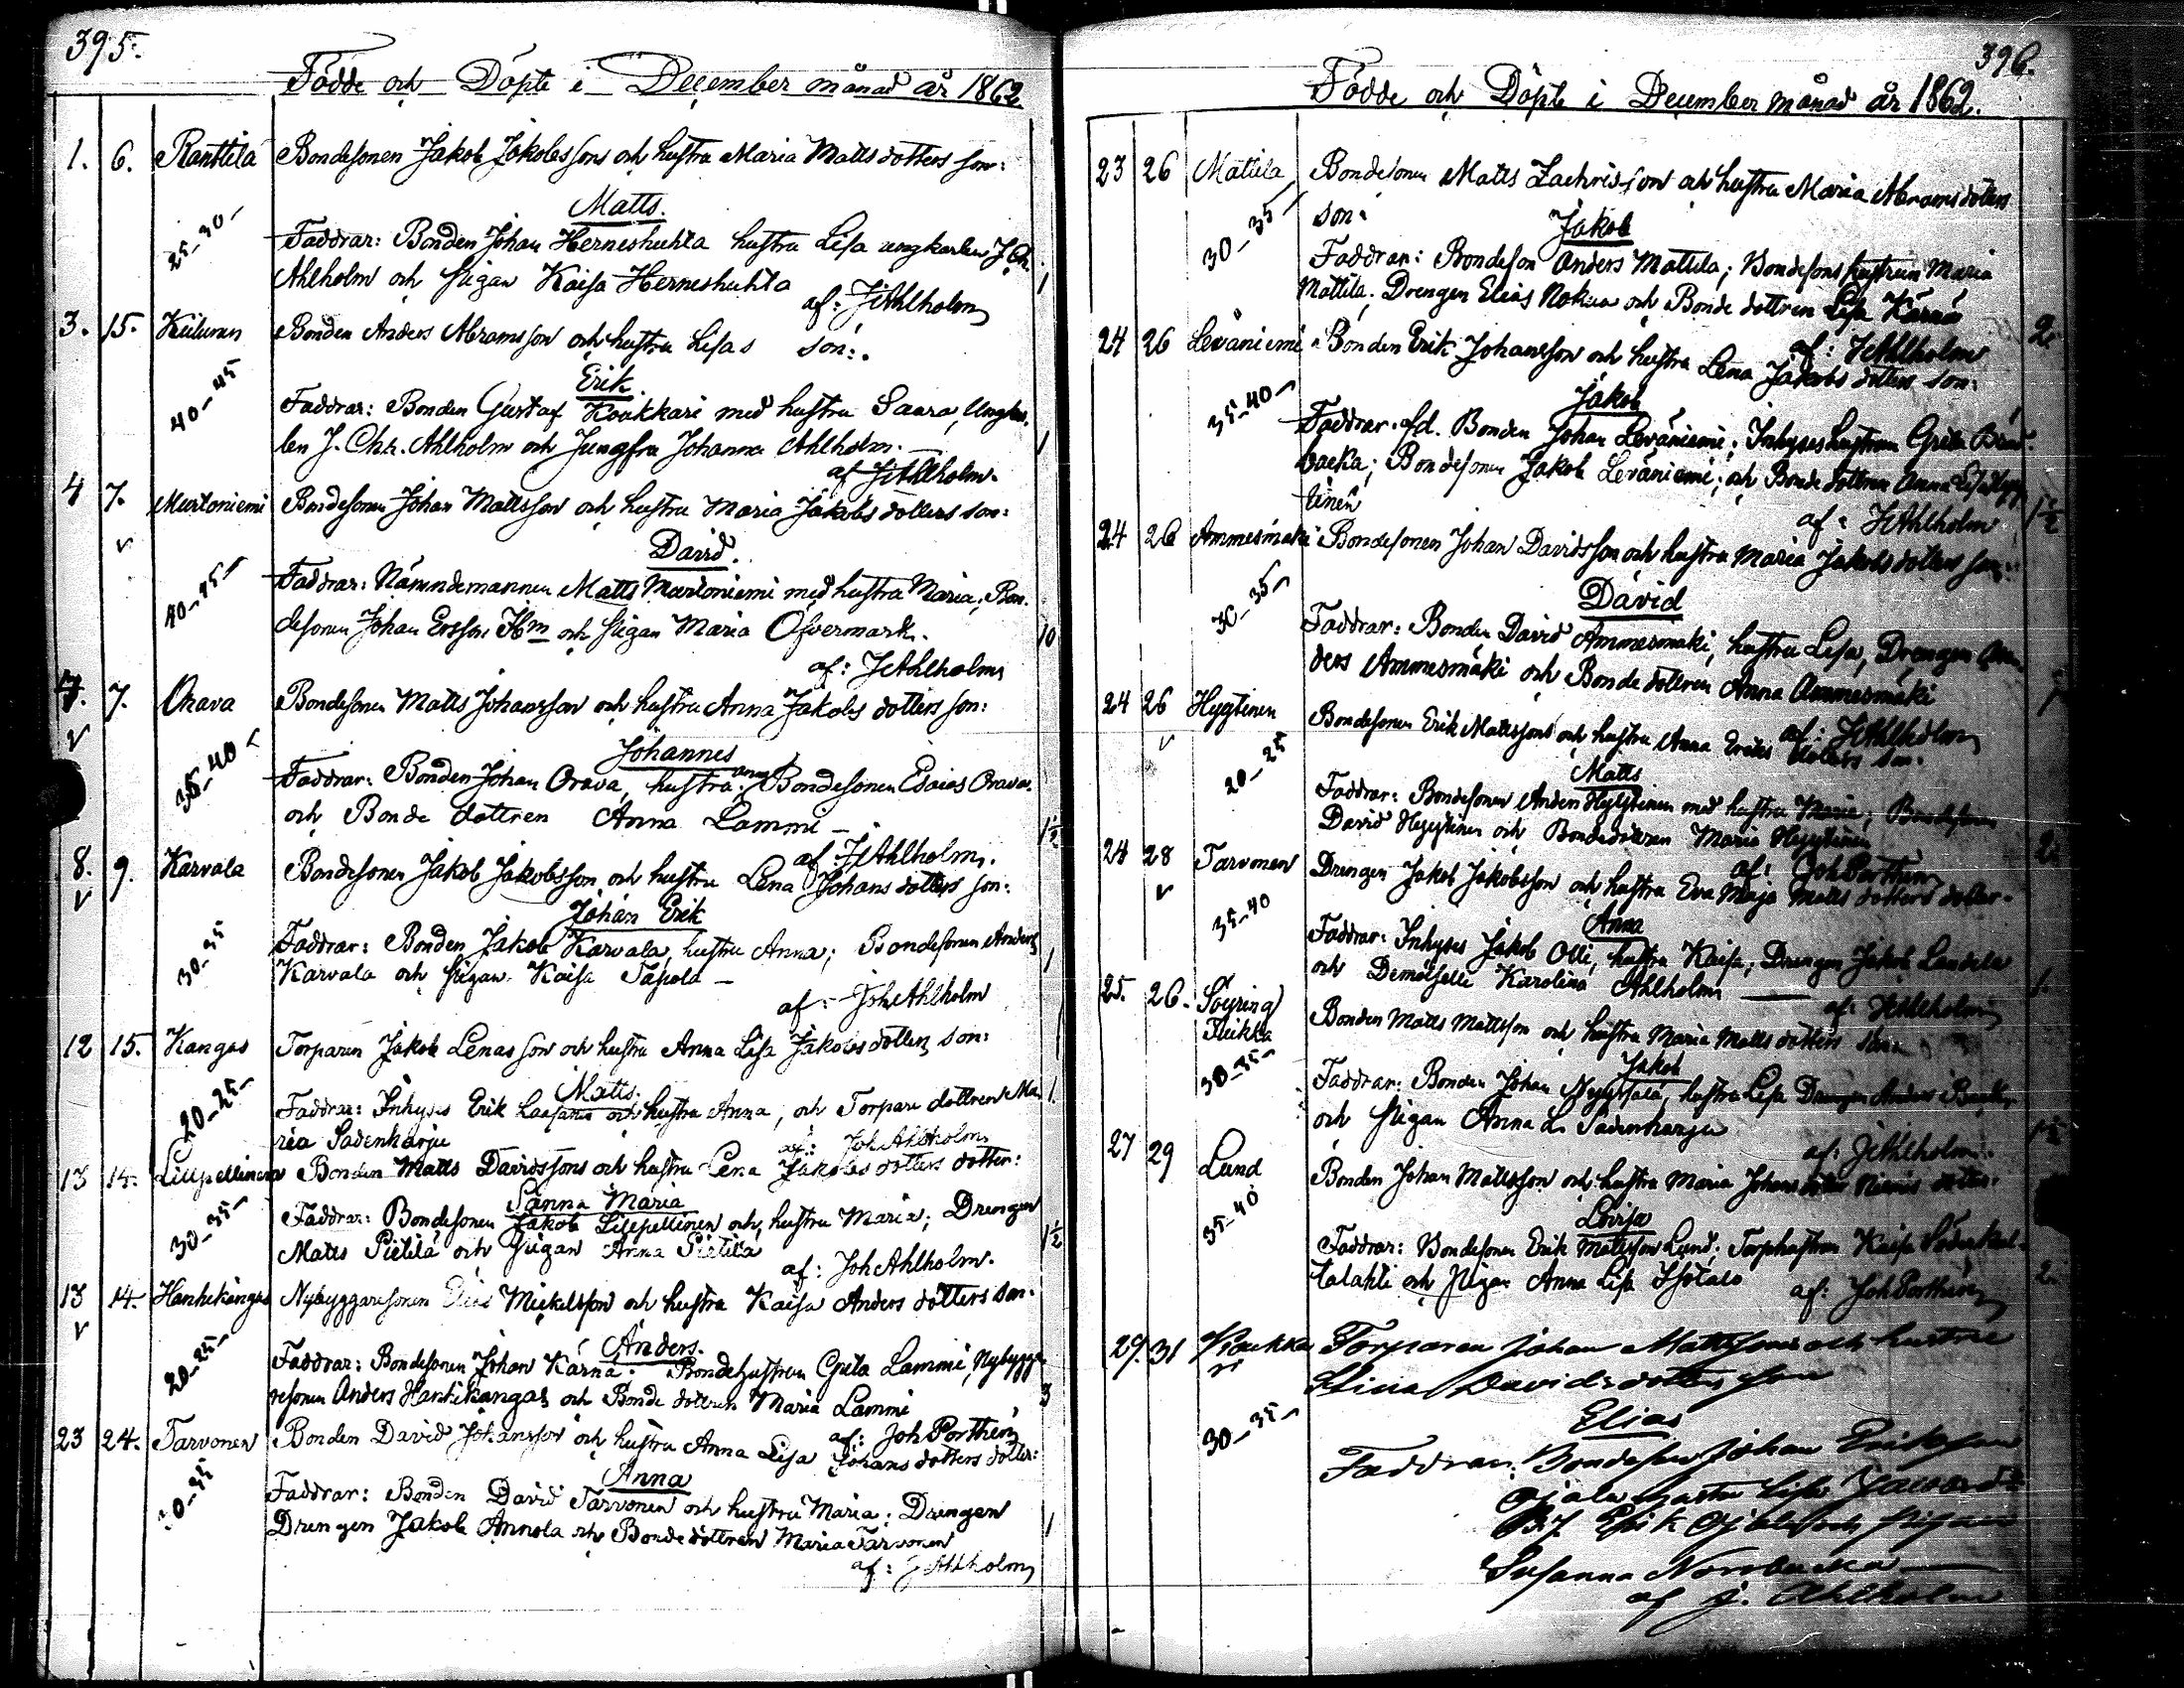 395.
Födde och Döpte i December månad år 1862
1. 6. Ranttila Bondesonen Jakob Jakobsson och hustru Maria Mattsdotters son:
Matts.
25-30 Faddrar: Bonden Johan Herneshuhta hustru Lisa ungkarlen J. Ch.
Ahlholm och pigan Kaisa Herneshuhta
af: J Ahlholm
3. 15. Bonden Anders Abramsson och hustru Lisas son:
Erik
40-45 Faddrar: Bonden Gustaf Koukkari med hustru Saara, Ungkar-
len J. Chr. Ahlholm och Jungfru Johanna Ahlholm. 1
af J Ahlholm.
4 7. Murtoniemi Bondesonen Johan Mattsson och hustru Maria Jakobsdotters son:
David.
40-45 Faddrar: Nämndemannen Matts Murtoniemi med hustru Maria, Bon-
desonen Johan Ersson Hm och pigan Maria Öfvermark. 10
af: J Ahlholm
7. 7. Orava Bondesonen Matts Johansson och hustru Anna Jakobsdotters son:
Johannes
35-40 Faddrar: Bonden Johan Orava, hustru Anna, Bondesonen Esaias Orava
och Bondedottren Anna Lammi 1½
af J Ahlholm.
8. 9. Karvala Bondesonen Jakob Jakobsson och hustru Lena Johansdotters son:
Johan Erik
30-35 Faddrar: Bonden Jakob Karvala, hustru Anna; Bondesonen Anders
Karvala och pigan Kaisa Tapola 1
af: Joh Ahlholm
12 15. Kangas Torparen Jakob Lenasson och hustru Anna Lisa Jakobsdotters son:
Matts.
20-25 Faddrar: Inhyses Erik Laasanen och hustru Anna, och Torparedottren Ma- 1
ria Sadenharju
af: Joh Ahlholm
13 14. Lillpellinen Bonden Matts Davidssons och hustru Lena Jakobsdotters dotter:
Sanna Maria
30-35 Faddrar: Bondesonen Jakob Lillpellinen och hustru Maria; Drengen
Matts Pietilä och pigan Anna Pietilä 1½
af: Joh Ahlholm.
13 14. Hanhikangas Nybyggaresonen Mickelsson och hustru Kaisa Andersdotters son.
Anders.
20-25 Faddrar: Bondesonen Johan Kärnä; Bondehustrun Greta Lammi, Nybygga-
resonen Anders Hanhikangas och Bondedottren Maria Lammi 3
af: Joh Porthen
23 24. Tarvonen Bonden David Johansson och hustru Anna Lisa Johansdotters dotter:
Anna
Faddrar: Bonden David Tarvonen och hustru Maria; Drengen
Drengen Jakob Annola och Bondedottren Maria Tarvonen 1
af: J Ahlholm
396.
Födde och Döpte i December månad år 1862.
23 26 Mattila Bondesonen Matts Zachrisson och hustru Maria Abramsdotters
son:
Jakob
30-35 Faddrar: Bondeson Anders Mattila; Bondesonshustrun Maria
Mattila; Drengen Elias Nokua och Bondedottren Lisa Kärnä
af: J Ahlholm 2.
24 26 Leväniemi Bonden Erik Johansson och hustru Lena Jakobsdotters son:
Jakob
35-40 Faddrar: fd. Bonden Johan Leväniemi; Inhyseshustrun Greta
backa; Bondesonen Jakob Leväniemi; och Bondedottren Anna Lisa Hyy-
tinen
af: J Ahlholm 1½
24 26 Ammesmäki Bondesonen Johan Davidsson och hustru Maria Jakobsdotters son:
David
30-35 Faddrar: Bonden David Ammesmäki, hustru Lisa, Drengen An-
ders Ammesmäki och Bondedottren Anna Ammesmäki 1
af: J Ahlholm
24 26 Hyytinen Bondesonen Erik Mattssons och hustru Anna Eriksdotters son.
Matts
20-25 Faddrar: Bondesonen Anders Hyytinen med hustru Maria; Bondesonen
David Hyytinen och Bondedottren Maria Hyytinen 2.
af: Joh Porthen
24 28 Tarvonen Drengen Jakob Jakobsson och hustru Eva Maja Mattsdotters dotter.
Anna
35-40 Faddrar: Inhyses Jakob Olli, hustru Kaisa; Drengen Jakob Landela
och Demoiselle Karolina Ahlholm 1.
af: J Ahlholm
25. 26. Bonden Matts Mattsson och hustru Maria Mattsdotters son:
Jakob
Faddrar: Bonden Johan hustru Lisa Drengen Anders
och pigan Anna L. Sadenharju 1½
af: J Ahlholm.
27 29 Lund Bonden Johan Mattsson och hustru Maria Johansdotter dotter.
Lovisa
35-40 Faddrar: Bondesonen Erik Mattsson Lund; Torphustrun Kaisa
talahti och pigan Anna Lisa Isotalo 2.
af: Joh Porthen
29. 31 Koukkari Torparen Johan Mattssons och hustru
Stina Davidsdotters son
Elias
30-35 Faddrar: Bondeson Johan Eriksson
Ojala hustru Lisa
Erik Ojala och pigan
Susanna Norrbacka
af J. Ahlholm